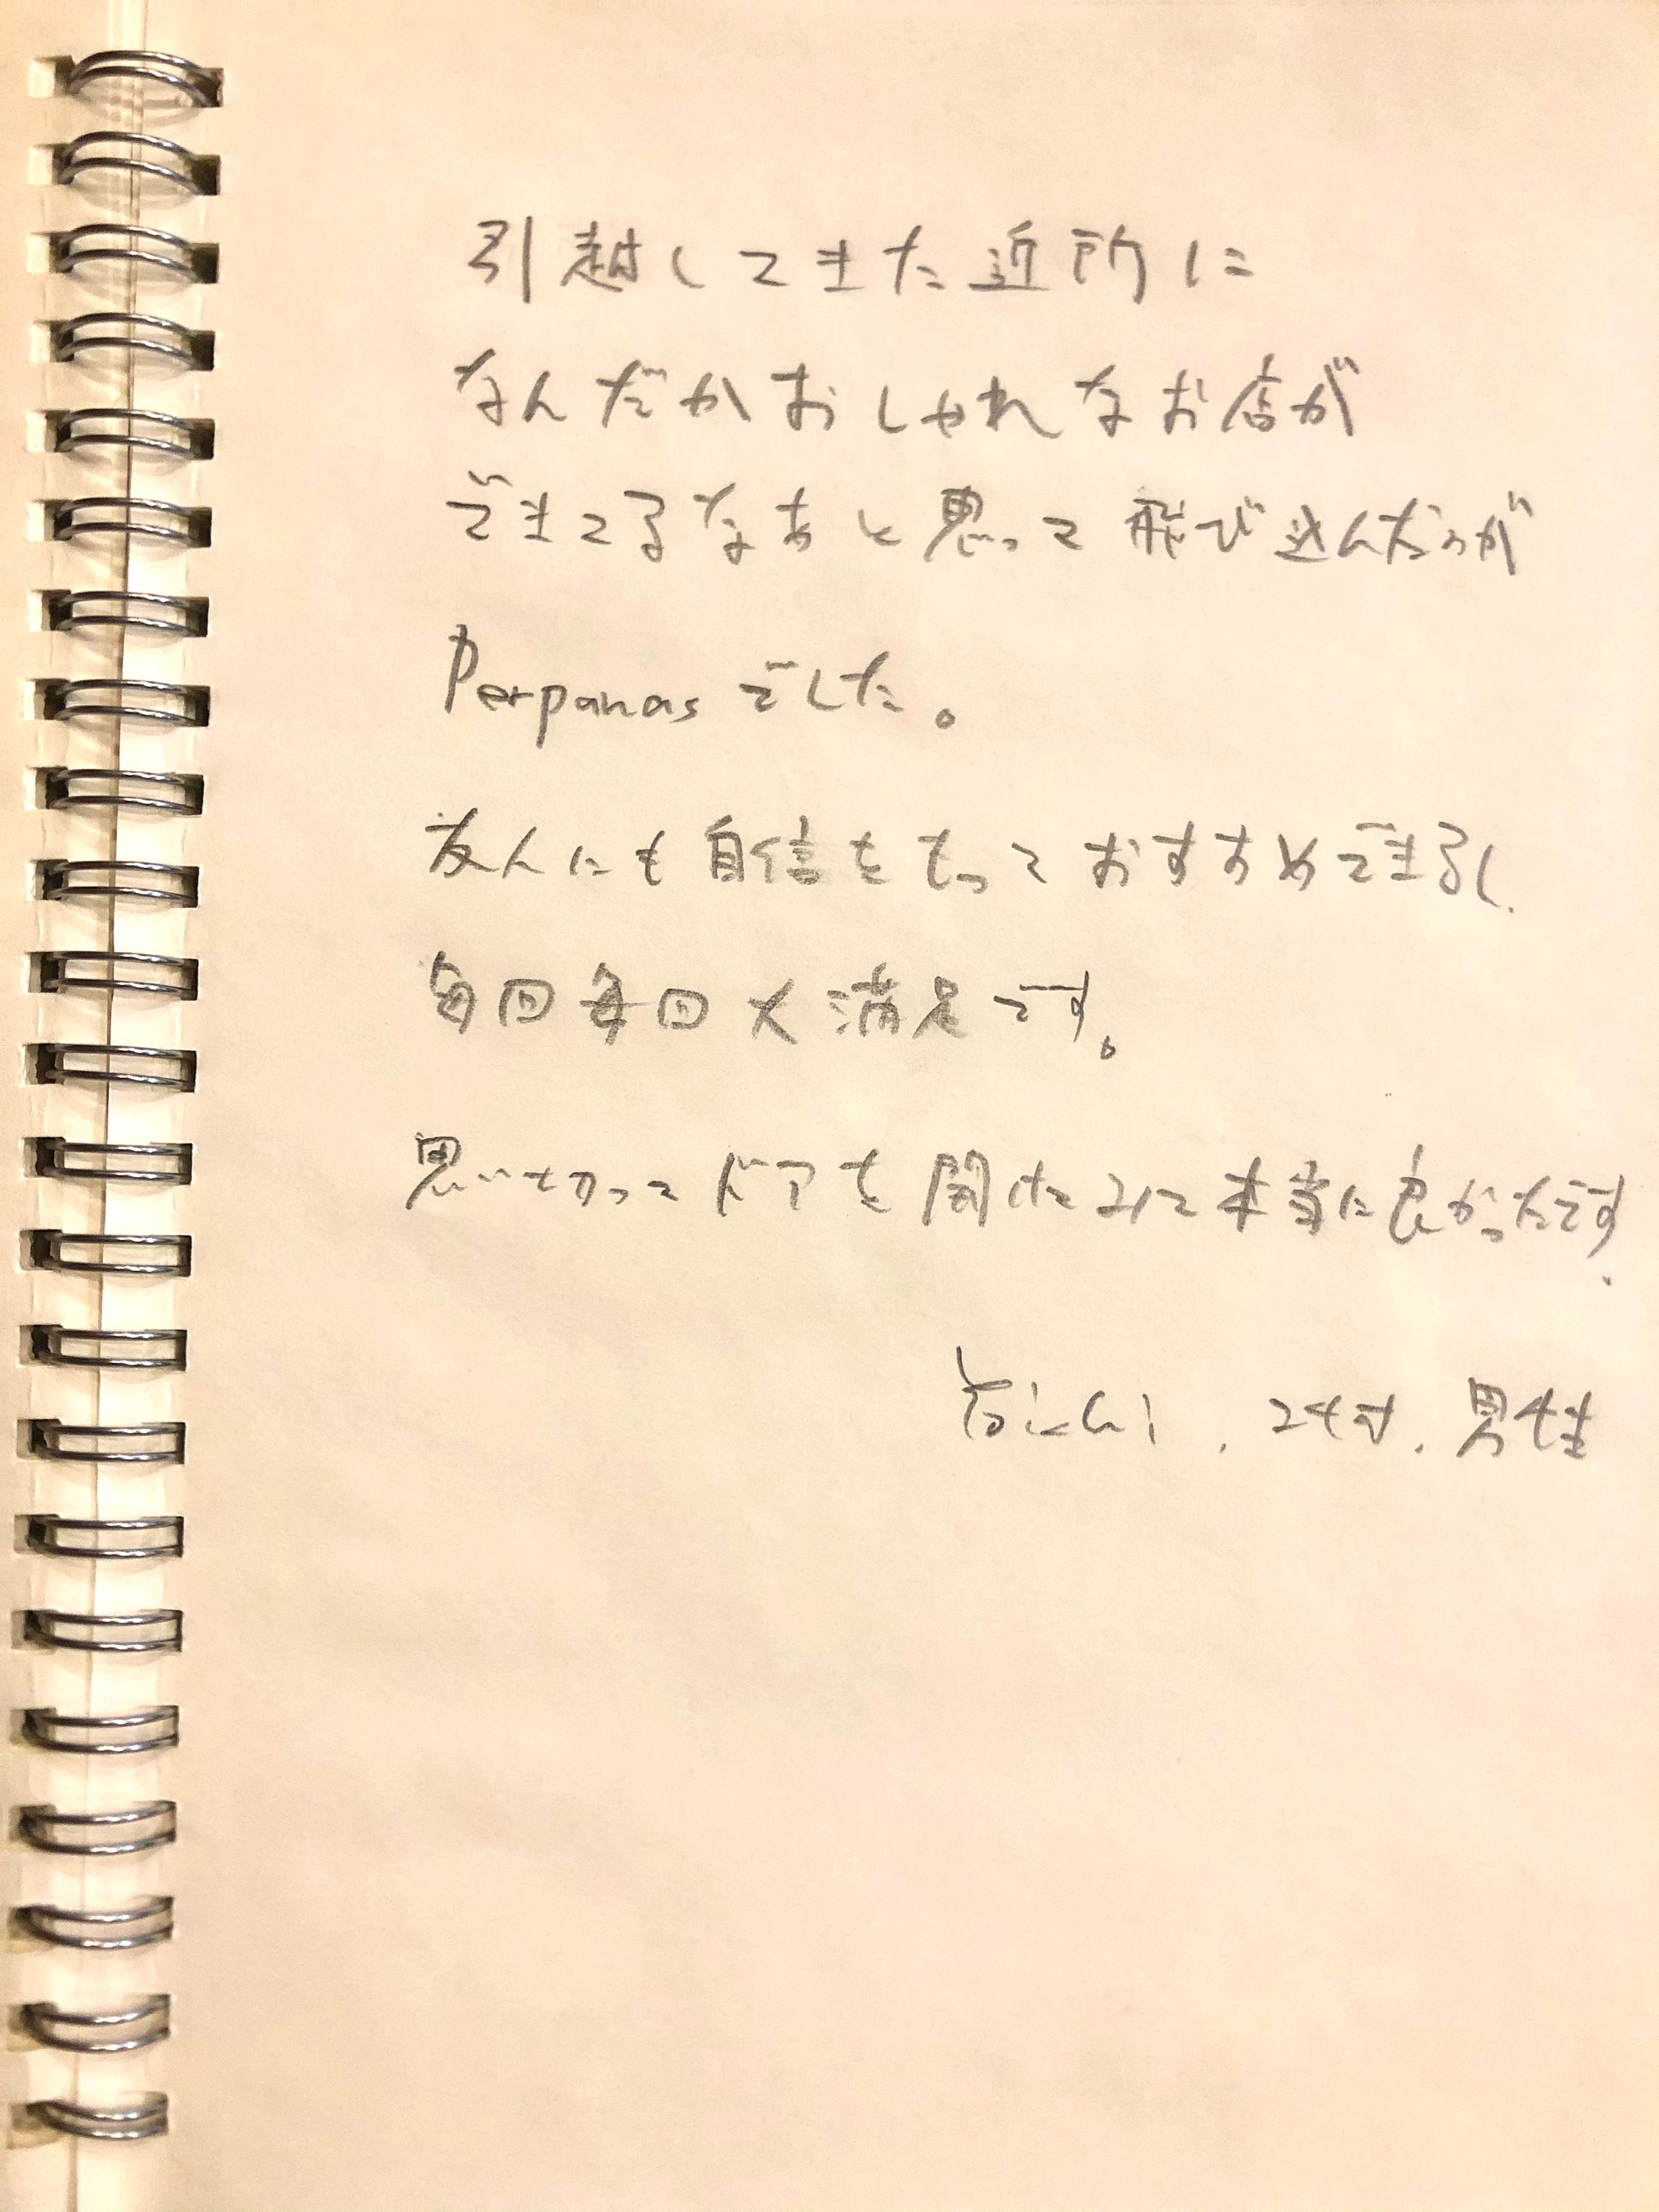 引越してきた近所に
なんだかおしゃれなお店が
できてるなあと思って飛び込んだのが
Perpanasでした。
友人にも自信をもっておすすめできるし、
毎回毎回大満足です。
思い切ってドアを開けてみて本当に良かったです.
24才、男性